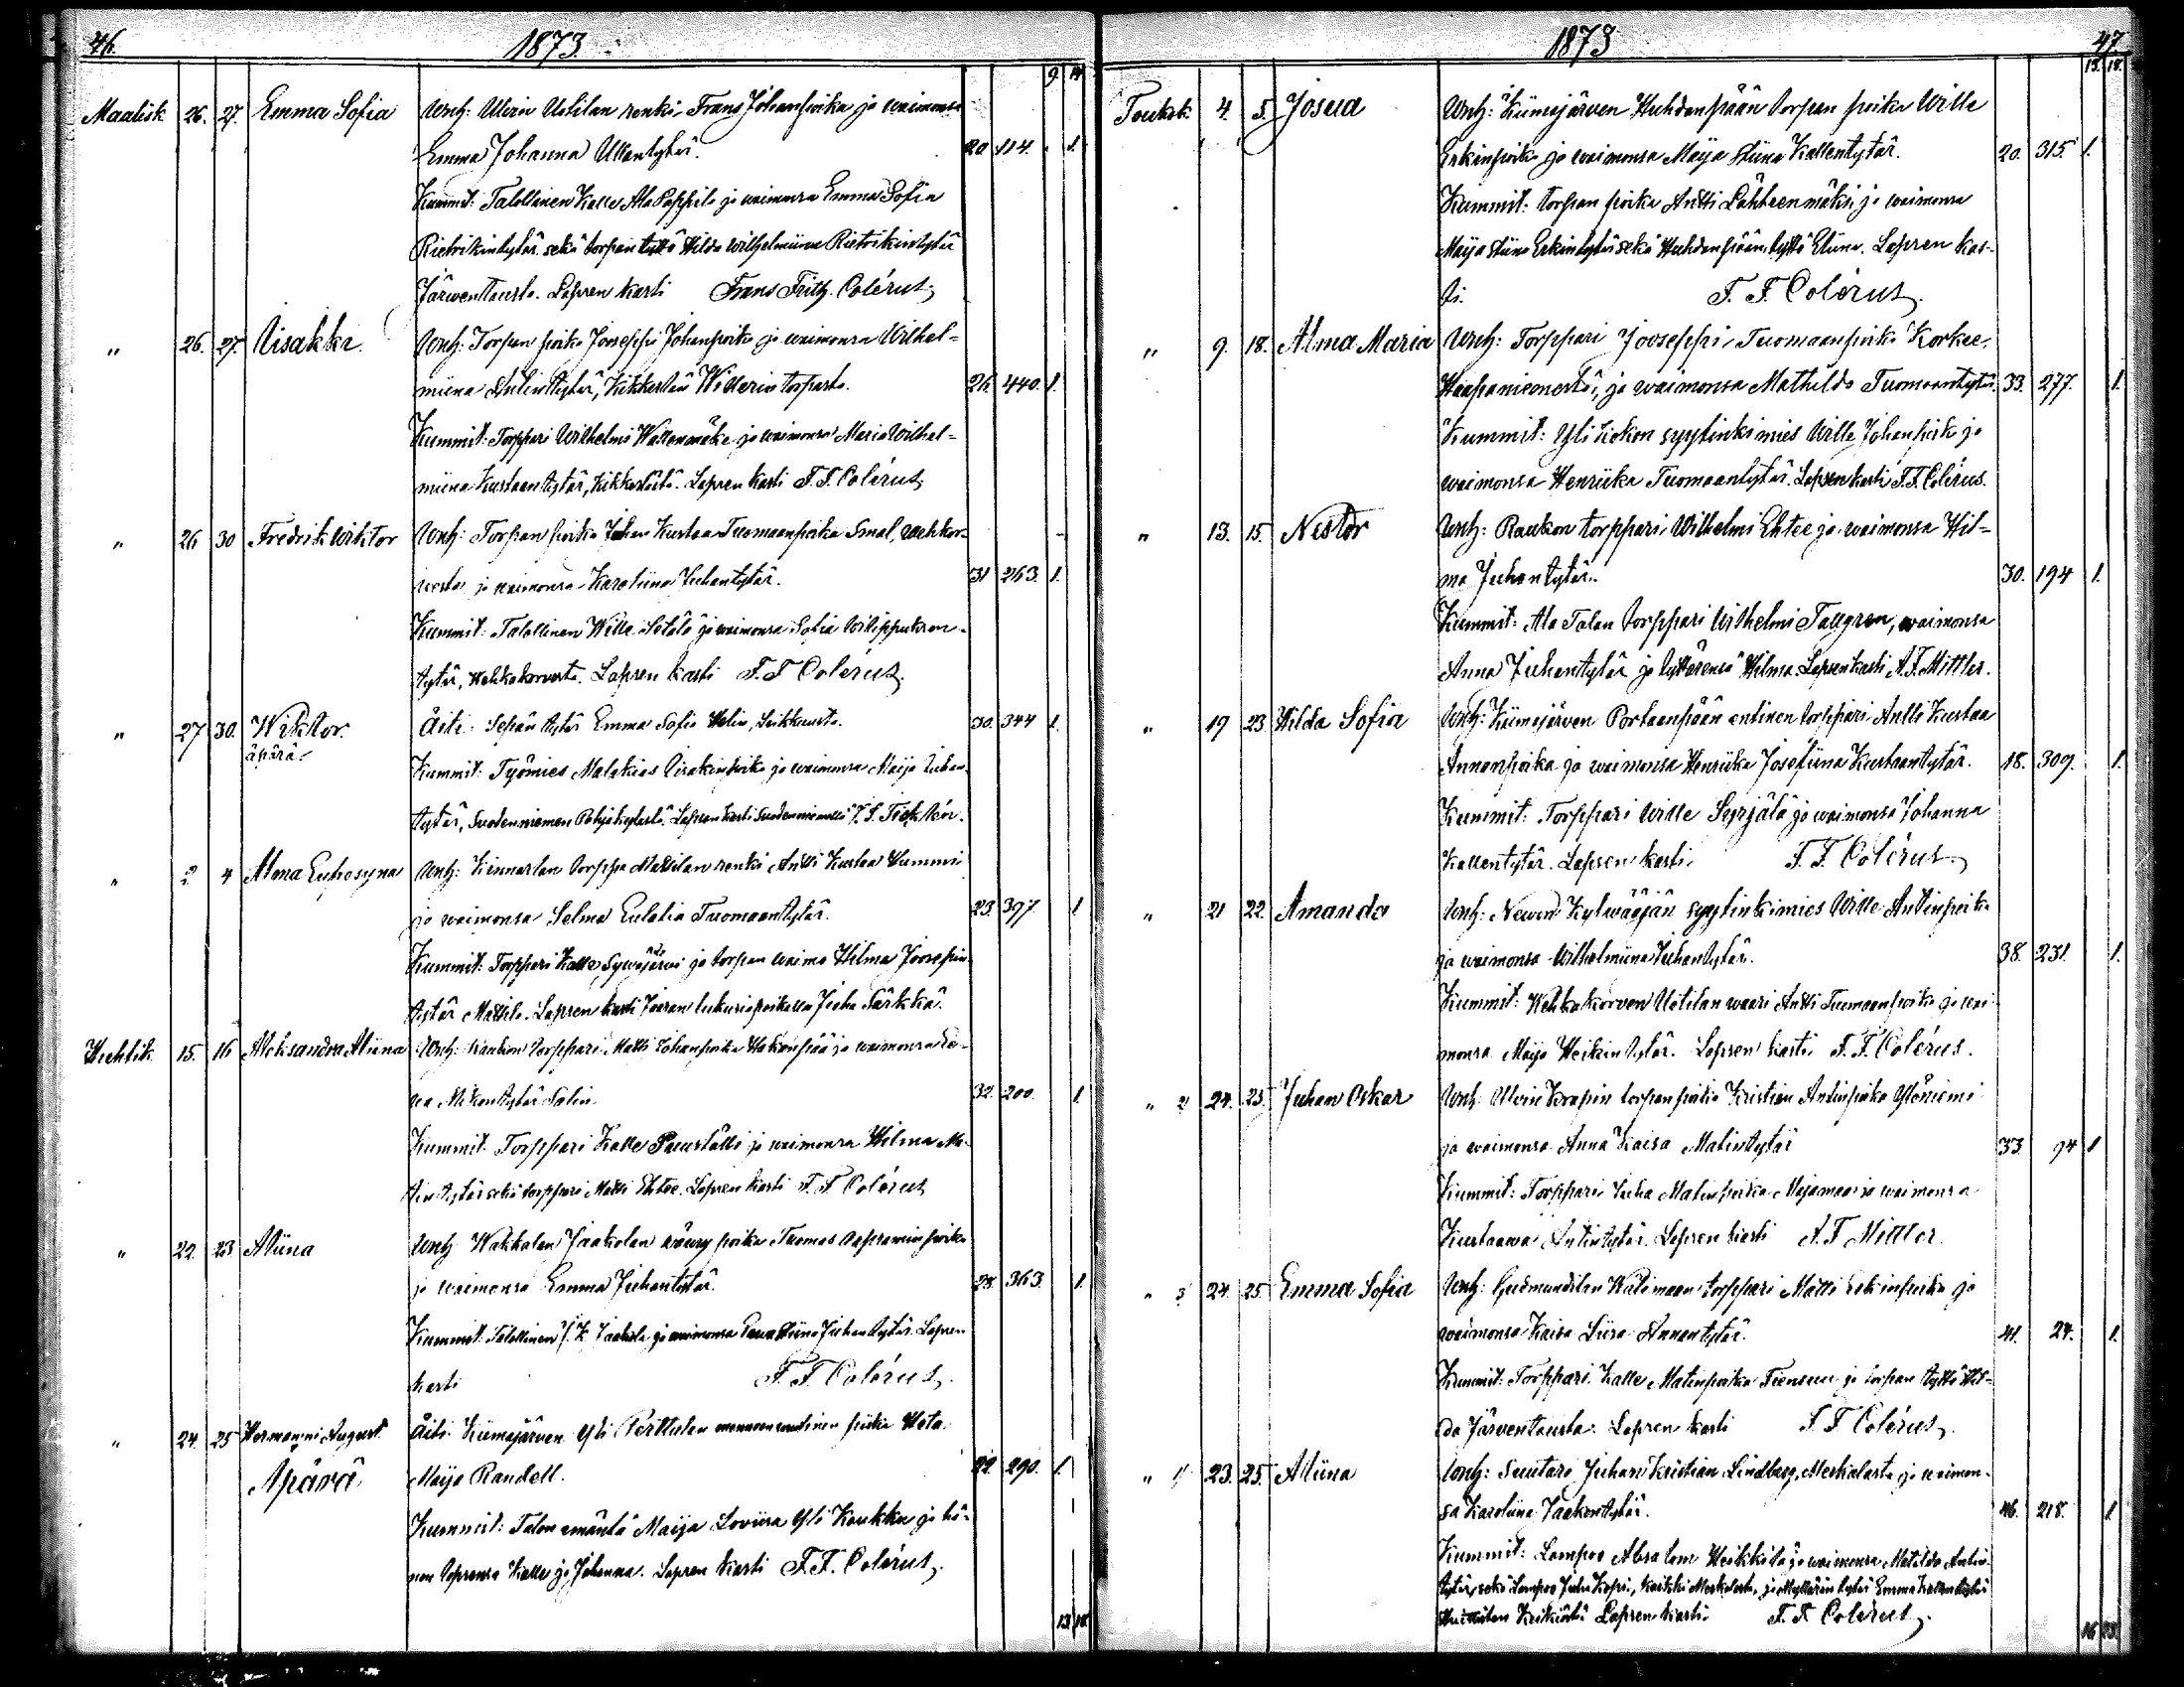 46. 1873.
9. 14
Maalisk 26. 27. Emma Sofia Wnh: Ulvin Uotilan renki Frans Johanpoika ja waimonsa
Emma Johanna Ullantytär. 20 114. 1.
Kummit: Talollinen Kalle Ala Pappila ja waimonsa Emma Sofia
Rietrikintytär sekä torpan tyttö Hilda Wilhelmiina Rietrikintytär
Järwentausta. Lapsen kasti Frans Frith. Colérus.
" 26. 27. Iisakki. Wnh: Torpan poika Jooseppi Johanpoika ja waimonsa Wilhel-
miina Antintytär, Kikkerlän Willerin torpasta. 26. 440. 1.
Kummit: Torppari Wilhelmi Wallenmäki ja waimonsa Maria Wilhel-
miina Kustaantytär, Kikkerlästä. Lapsen kasti F. F. Colérus,
" 26 30 Fredrik Wiktor Wnh: Torpan poika Johan Kustaa Tuomaanpoika Smal, Wehkor-
westa ja waimonsa Karoliina Juhantytär. 31 263. 1.
Kummit: Talollinen Wille Sotala ja waimonsa Sofia
tytär, Wehkakorvesta. Lapsen kasti F. F Colérus.
" 27 30. Wiktor. Äiti: Sepän tytär Emma Sofia Helin, Leikkuusta. 30. 344 1.
äpärä. Kummit: Työmies Malakias Iisakinpoika ja waimonsa Maija Juhan-
tytär, Suodenniemen Pohjakylästä. Lapsen kasti Suodenniemellä
" 2 4 Alma Euphosyna Wnh: Kinnarlan torppa Mattilan renki Antti Kustaa Nummi
ja waimonsa Selma Eulalia Tuomaantytär. 23. 397 1
Kummit: Torppari Kalle Sywäjärwi ja torpan waimo Hilma Joosepin-
tytär Mattila. Lapsen kasti Juha Särkkä.
Huhtik. 15. 16 Aleksandra Aliina Wnh: Kaukon torppari Matti Johanpoika Hakanpää ja waimonsa
Mikontytär Salin. 32. 200. 1.
Kummit: Torppari Kalle Puustelli ja waimonsa Hilma Ma-
tintytär sekä torppari Matti Ehtee. Lapsen kasti F. F Colérus,
" 22. 23 Aliina Wnh Wakkalan Jaakolan wäwy poika Tuomas poika
ja waimonsa Emma Juhantytär. 28 363. 1.
Kummit: Talollinen J. K. Jaakola ja waimonsa Juhantytär. Lapsen
kasti F. F. Colérus,
" 24. 25 Hermanni August. Äiti: Kiimajärven Yli Perttulan piika Heta
Äpärä. Maija Randell. 22. 290. 1.
Kummit: Talon emäntä Maija Loviisa Yli Kaukka ja hä-
nen lapsensa Kalle ja Johanna. Lapsen kasti F. F. Colérus,
13 18
1873 47.
13. 18.
Toukok. 4. 5. Josua Wnh: Kiimajärven Huhdanpään torpan poika Wille
Erkinpoika ja waimonsa Maija Stiina Kallentytär. 20. 315. 1.
Kummit: torpan poika Antti Lähteenmäki ja waimonsa
Maija Stiina Erkintytär sekä Huhdanpään tyttö Eliina. Lapsen kas-
ti. F. F. Colérus,
" 9. 18. Alma Maria Wnh: Torppari Jooseppi Tuomaanpoika Korkee,
Haapaniemestä, ja waimonsa Mathilda Tuomaantytär. 33. 277. 1.
Kummit: Yli Liekon syytinkimies Wille Johanpoik ja
waimonsa Henriika Tuomaantytär. Lapsen kasti F. F. Colérus.
" 13. 15. Nestor Wnh: Raukon torppari Wilhelmi Ehtee ja waimonsa Hil-
ma Juhantytär. 30. 194 1.
Kummit: Ala Talan torppari Wilhelmi Tallgren, waimonsa
Anna Juhantytär ja tyttärensä Hilma. Lapsen kasti A. F. Mittler.
" 19 23 Hilda Sofia Wnh: Kiimajärven Portaanpään entinen torppari Antti Kustaa
Annanpoika ja waimonsa Henriika Josefiina Kustaantytär. 18. 309. 1.
Kummit: Torppari Wille Syrjälä ja waimonsa Johanna
Kallentytär. Lapsen kasti. F. F. Colérus.
" 21 22. Amanda Wnh: Newon Kylwääjän syytinkimies Wille Antinpoika
ja waimonsa Wilhelmiina Juhantytär. 38. 231. 1.
Kummit: Wehkakorven Uotilan waari Antti Tuomaanpoika ja wai-
monsa Maija Heikintytär. Lapsen kasti F. F. Colérus.
" 2 24. 25. Juhan Oskar Wnh: Ulvin Krapin torpan poika Kristian Antinpoika Ylöniemi
ja waimonsa Anna Kaisa Matintytär 33. 94 1
Kummit: Torppari Juha Matinpoika Majamaa ja waimonsa
Kustaawa Antintytär. Lapsen kasti A. F Mittler.
" 3 24. 25. Emma Sofia Wnh: Gudmundilan Walimaan torppari Matti Erkinpoika ja
waimonsa Kaisa Liisa Annantytär. 41. 24. 1.
Kummit: Torppari Kalle Matinpoika Tiensuu ja torpan tyttö Hil-
da Järventausta. Lapsen kasti F. F Colérus,
" 1 23. 25. Aliina Wnh: Suutari Juhan Kristian Lindberg, Meskalasta ja waimon-
sa Karoliina Jaakontytär. 46. 218. 1.
Kummit: Lampoo Absalom Heikkilä ja waimonsa Matilda Antin-
tytär, sekä Lampoo Juha Kopsi, kaikki Meskalasta, ja Myllärin tytär Emma Kallentytär
Keikiästä Lapsen kasti. F. F. Colérus,
16 23